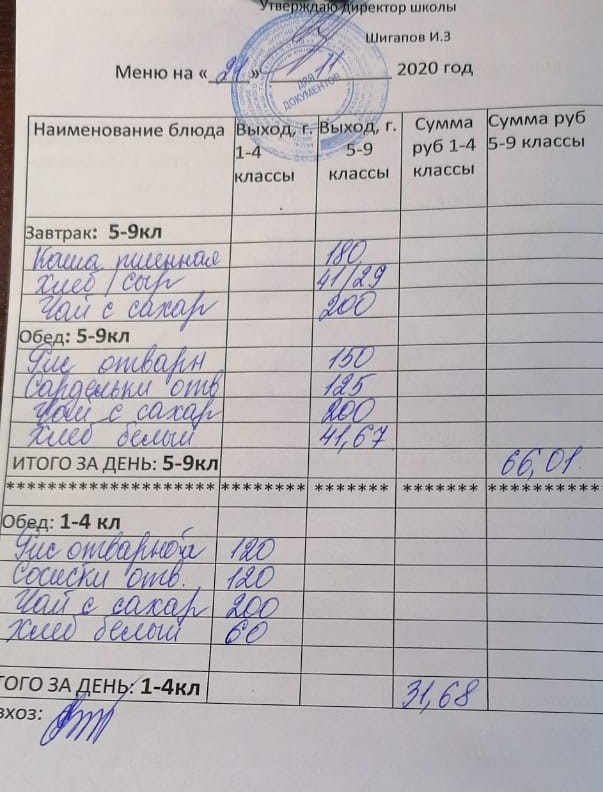 Утверждаю директор школы
Шигапов И.З
Меню на «21» 11 2020 год
ДЛЯ ДОКУМЕНТОВ
Наименование блюда Выход, г. 1-4 классы Выход, г. 5-9 классы Сумма руб 1-4 классы Сумма руб 5-9 классы
Завтрак: 5-9кл
Каша пшенная 180
Хлеб / сыр 41/29
Чай с сахар 200
Обед: 5-9кл
Рис отварн 150
Сардельки отв 125
Чай с сахар 200
Хлеб белый 41,67
ИТОГО ЗА ДЕНЬ: 5-9кл 66,01
******************** ******** ******* ******* ***********
Обед: 1-4 кл
Рис отварной 120
Сосиски отв. 120
Чай с сахар 200
Хлеб белый 60
ТОГО ЗА ДЕНЬ: 1-4кл 31,68
вхоз: